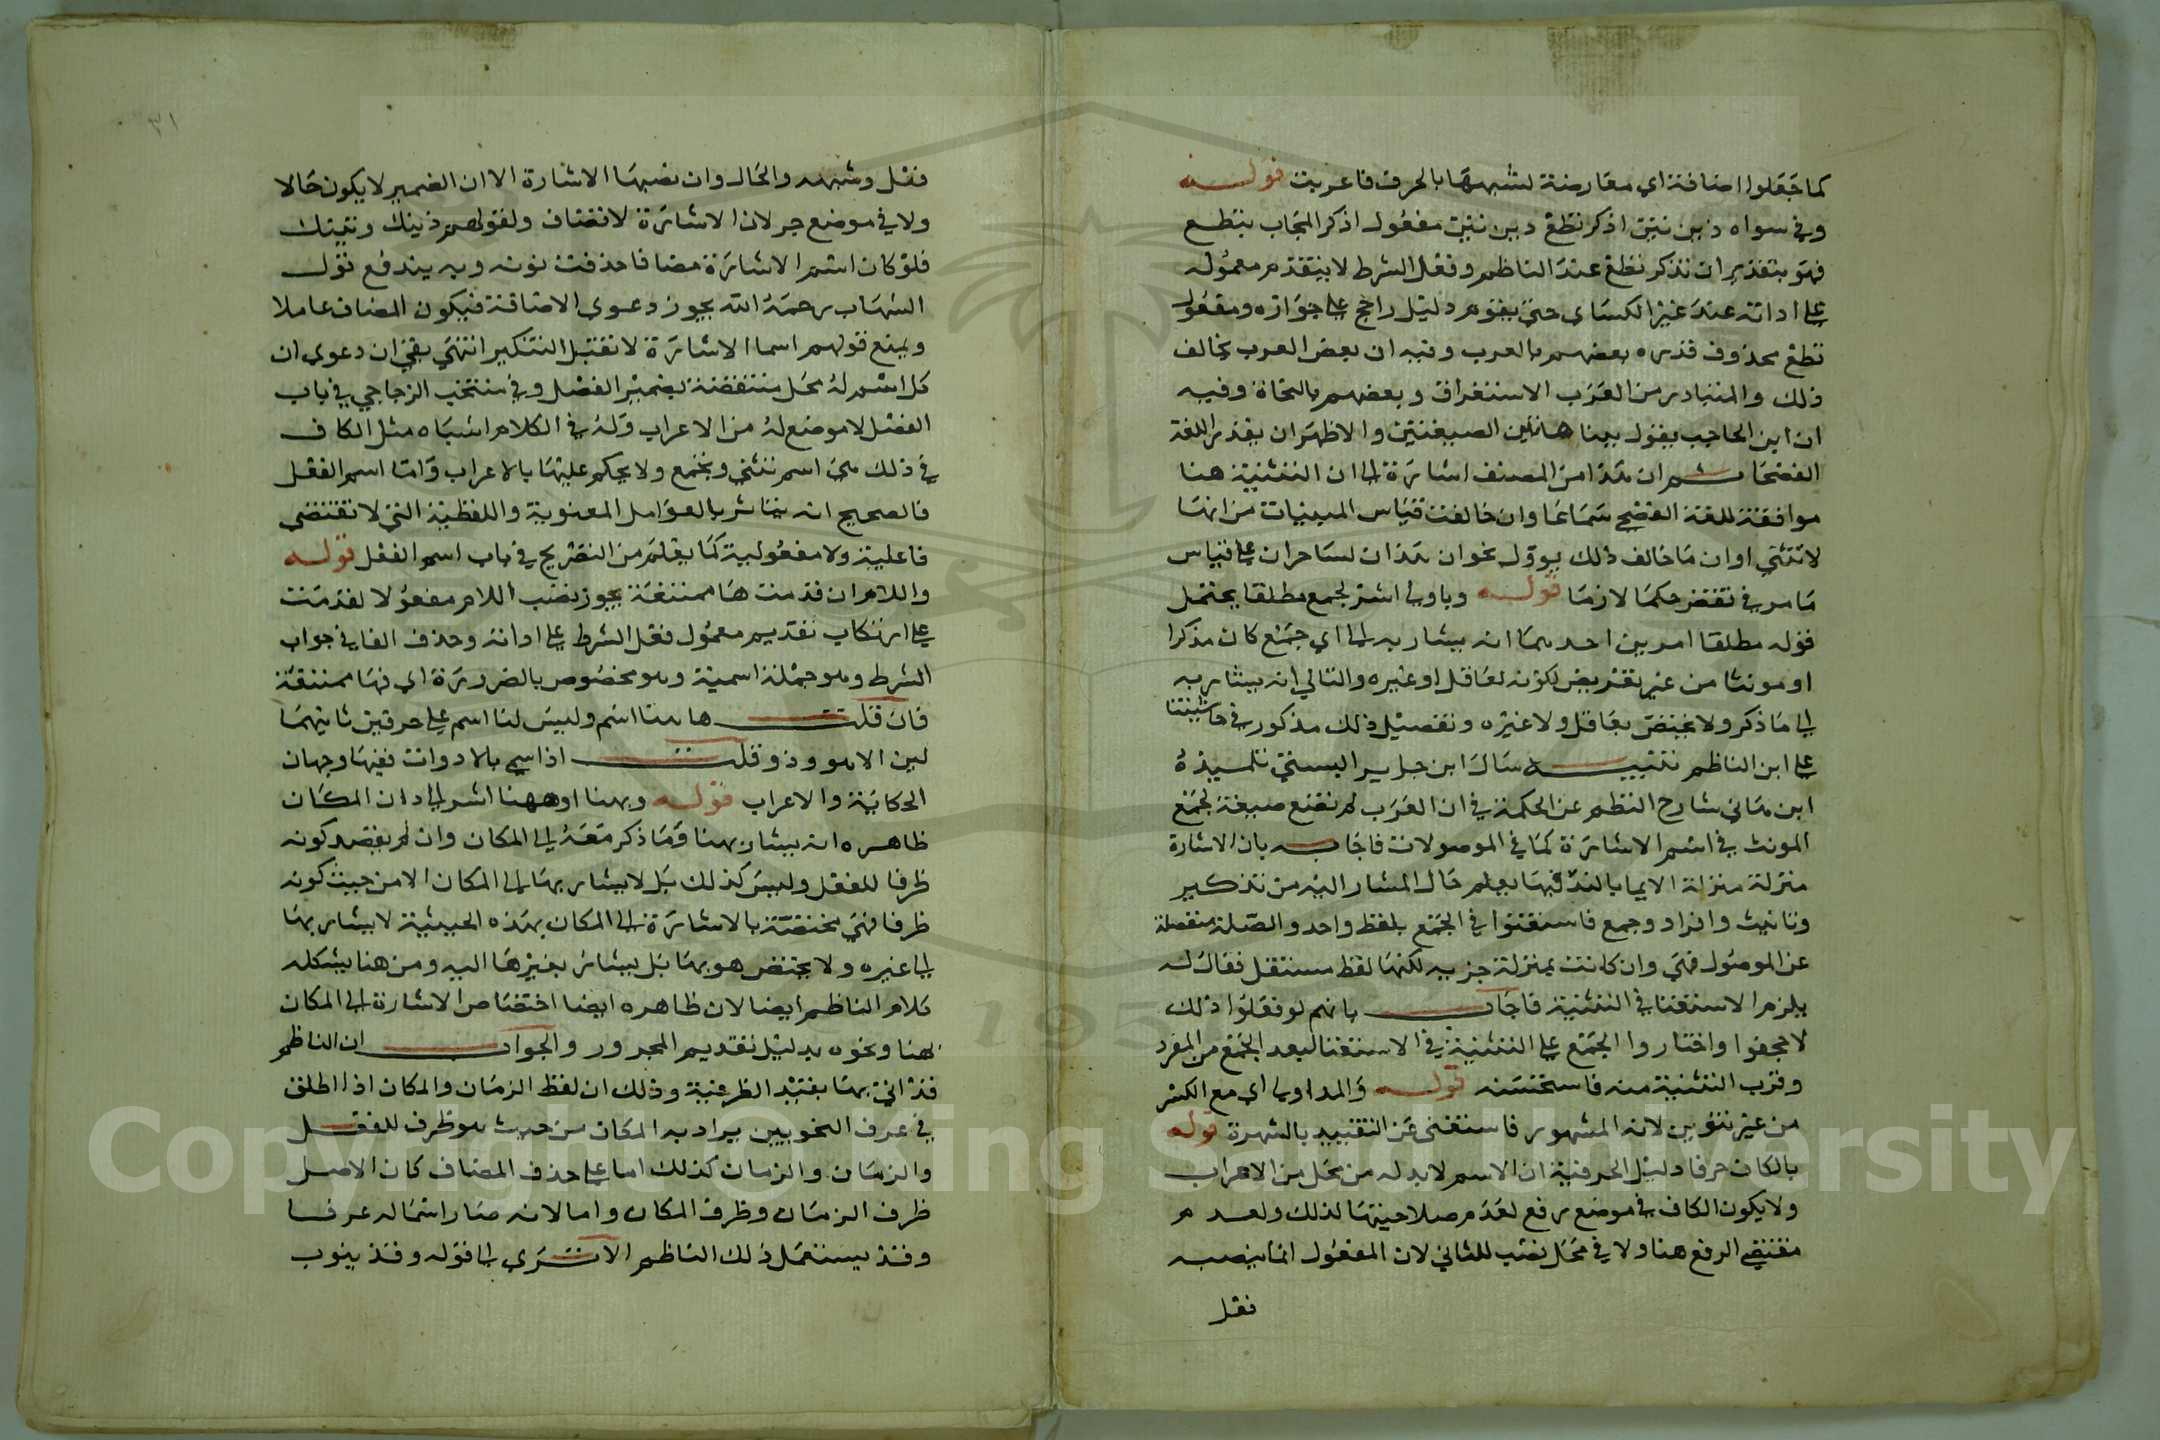 كما جعلوا اضافة اي معارضة لشبهها بالحرف فاعربت قوله
وفي سواه ذين تين اذكر تطع دين تين مفعول اذكر المجاب بتطع
فهو بتقدير ان تذكر تطع عند الناظم وفعل الشرط لا يتقدم معموله
على اداته عند غير الكساى حتى يقوم دليل راجح على جوازه ومفعول
تطع محذوف قدره بعضهم بالعرب وفيه ان بعض العرب يخالف
ذلك والمتبادر من العرب الاستغراق وبعضهم بالنحاة وفيه
ان ابن الحاجب يقول ببنا هاتين الصيغتين والاظهر ان يقدر اللغة
الفصحا ثم ان هذا من المصنف اشارة الى ان التثنية هنا
موافقة للغة الفصحى سماعا وان خالفت قياس المبنيات من انها
لا تثنى او ان ما خالف ذلك يوول نحو ان هذان لساحران على قياس
ما مر في تقتضر حكما لازما قوله وباولى اشر لجمع مطلقا يحتمل
قوله مطلقا امرين احدهما انه يشار به الى اي جمع كان مذكرا
او مونثا من غير تعريض لكونه لعاقل او غيره والثاني انه يشار به
الى ما ذكر ولا يختص بعاقل ولا غيره وتفصيل ذلك مذكور في حاشيتنا
على ابن الناظم تنبيه سال ابن جابر البستي تلميذه
ابن هاني شارح النظم عن الحكمة في ان العرب لم تضع صيغة لجمع
المونث في اسم الاشارة كما في الموصولات فاجاب بان الاشارة
منزلة منزلة الايما باليد فيها يعلم حال المشار اليه من تذكير
وتانيث وافراد وجمع فاستغنوا في الجمع بلفظ واحد والصلة منفصلة
عن الموصول فهي وان كانت بمنزلة جزيه لكنها لفظ مستقل فقال له
يلزم الاستغنا في التثنية فاجاب بانهم لو فعلوا ذلك
لاجحفوا واختاروا الجمع على التثنية في الاستغنا لبعد الجمع من المفرد
وقرب التثنية منه فاستحسنه قوله والمد اولى اي مع الكسر
من غير تنوين لانه المشهور فاستغنى عن التقييد بالشهرة قوله
بالكاف حرفا دليل الحرفية ان الاسم لا بد له من محل من الاعراب
ولا يكون الكاف في موضع رفع لعدم صلاحيتها لذلك ولعدم
مقتضى الرفع هنا ولا في محل نصب للثاني لان المفعول انما ينصبه
فعل
٣١
فعل وشبهه والحال وان نصبها الاشارة الا ان الضمير لا يكون حالا
ولا في موضع جر لان الاشارة لا تضاف ولقولهم ذينك وتينك
فلو كان اسم الاشارة مضافا حذفت نونه وبه يندفع قول
الشهاب رحمه الله يجوز دعوى الاضافة فيكون المضاف عاملا
ويمنع قولهم اسما الاشارة لا تقبل التنكير انتهى بقي ان دعوى ان
كل اسم له محل منتقضة بضمير الفصل وفي منتخب الزجاجي في باب
الفصل لا موضع له من الاعراب وله في الكلام اشباه مثل الكاف
في ذلك هي اسم تثنى وتجمع ولا يحكم عليها بالاعراب واما اسم الفعل
فالصحيح انه يتاثر بالعوامل المعنوية واللفظية التي لا تقتضي
فاعلية ولا مفعولية كما يعلم من التصريح في باب اسم الفعل قوله
واللام ان قدمت ها ممتنعة يجوز نصب اللام مفعولا لقدمت
على ارتكاب تقديم معمول فعل الشرط على اداته وحذف الفا في جواب
الشرط وهو جملة اسمية وهو مخصوص بالضرورة اي فها ممتنعة
فان قلت ها هنا اسم وليس لنا اسم على حرفين ثانيهما
لين الا هو وذو قلت اذا سمي بالادوات ففيها وجهان
الحكاية والاعراب قوله وبهنا او ههنا اشر الى دان المكان
ظاهره انه يشار بهنا وما ذكر معه الى المكان وان لم يقصد كونه
ظرفا للفعل وليس كذلك بل لا يشار بها الى المكان الا من حيث كونه
ظرفا فهي مختصة بالاشارة الى المكان بهذه الحيثية لا يشار بها
الى غيره ولا يختص هو بها بل يشار بغيرها اليه ومن هنا يشكل
كلام الناظم ايضا لان ظاهره ايضا اختصاص الاشارة الى المكان
بهنا ونحوه بدليل تقديم المجرور والجواب ان الناظم
قد اتى بها بقيد الظرفية وذلك ان لفظ الزمان والمكان اذا اطلق
في عرف النحويين يراد به المكان من حيث هو ظرف للفعل
والزمان والزمان كذلك اما على حذف المضاف كان الاصل
ظرف الزمان وظرف المكان واما لانه صار اسما له عرفا
وقد يستعمل ذلك الناظم الا ترى الى قوله وقد ينوب
Copyright © King Saud University
195